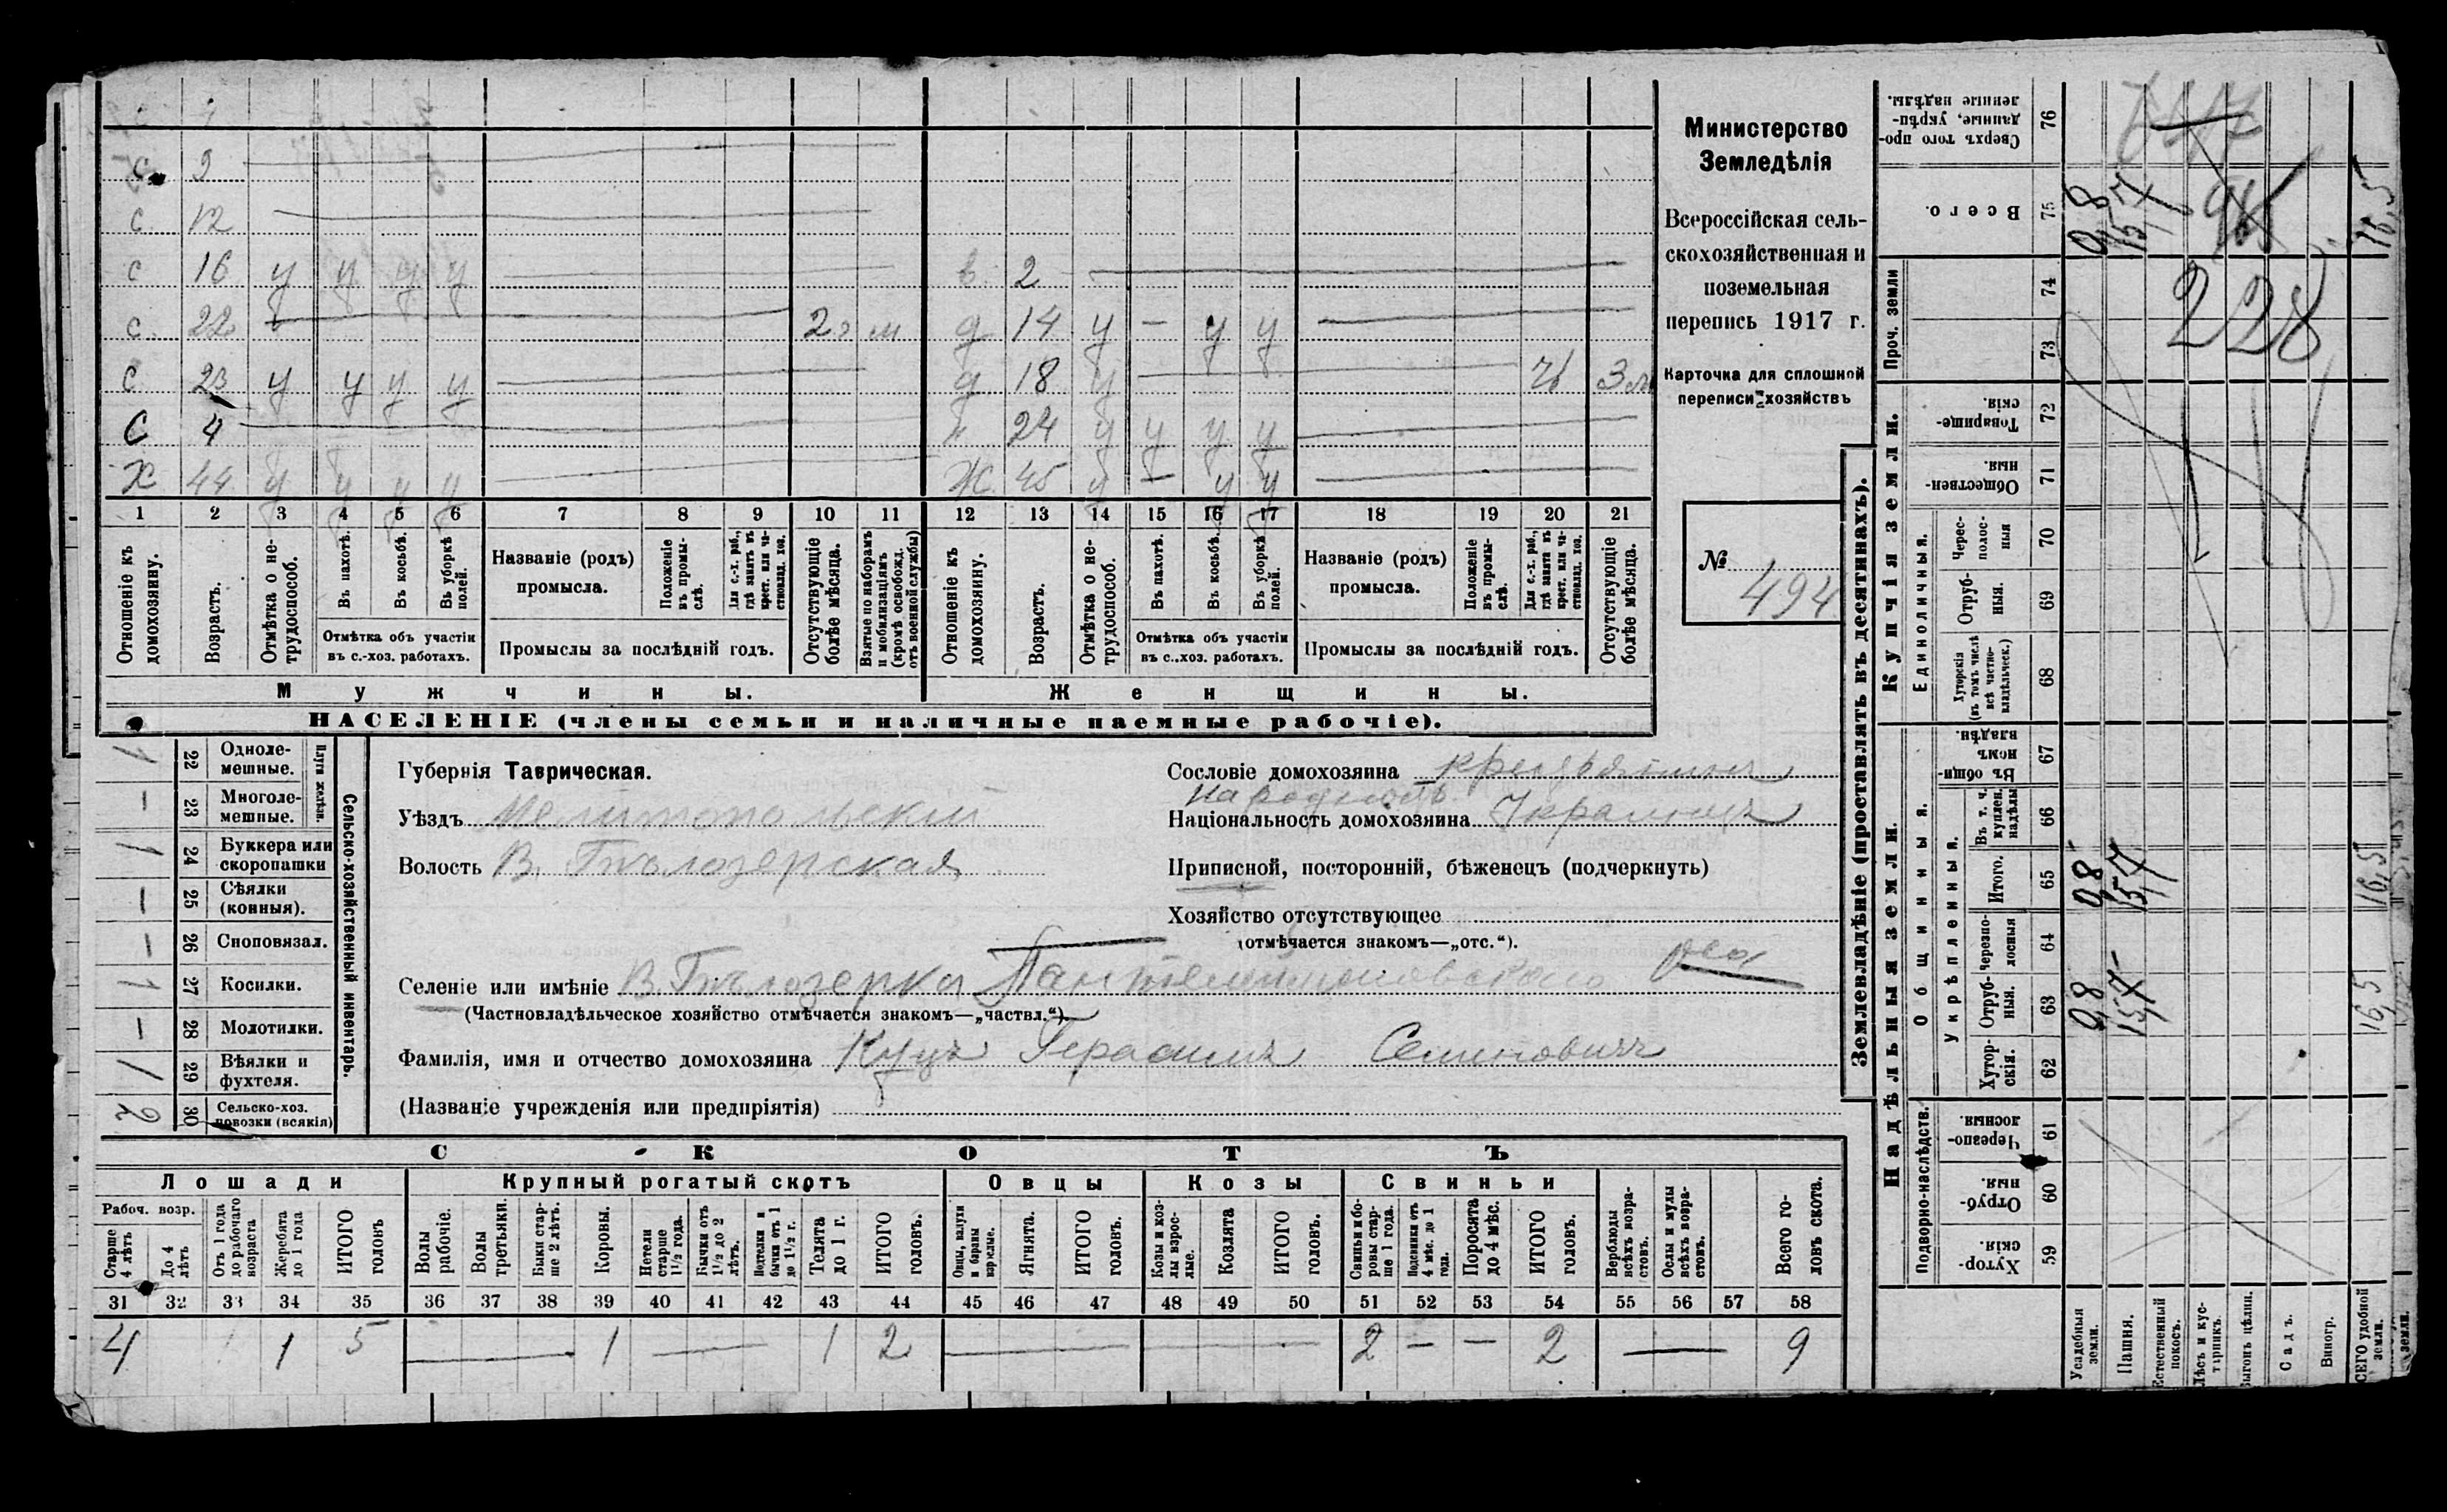 с 9
с 12
с 16 у у у у в 2
с 22 2 г м д 14 у — у у
с 23 у у у у д 18 у 3 м
С 4 24 у у у у
Х 44 у у у у Ж 45 у — у у
1 2 3 4 5 6 7 8 9 10 11 12 13 14 15 16 17 18 19 20 21
Отношеніе къ домохозяину.
Возрастъ.
Отмѣтка о не-трудоспособ.
Въ пахотѣ.
Въ косьбѣ.
Въ уборкѣ полей.
Отмѣтка объ участіи
въ с.-хоз. работахъ.
Названіе (родъ)
промысла.
Положеніе въ промы-слѣ.
Для с.-х. раб., гдѣ занятъ въ крест. или ча-стновлад. хоз.
Промыслы за послѣдній годъ.
Отсутствующіе болѣе мѣсяца.
Взятые по наборамъ и мобилизаціямъ (кромѣ освобожд. отъ военной службы)
Отношеніе къ домохозяину.
Возрастъ.
Отмѣтка о не-трудоспособ.
Въ пахотѣ.
Въ косьбѣ.
Въ уборкѣ полей.
Отмѣтка объ участіи
въ с..хоз. работахъ.
Названіе (родъ)
промысла.
Положеніе въ промы-слѣ.
Для с.-х. раб., гдѣ занята въ крест. или ча-стновлад. хоз.
Промыслы за послѣдній годъ.
Отсутствующіе болѣе мѣсяца.
Мужчины. Женщины.
НАСЕЛЕНІЕ (члены семьи и наличные наемные рабочіе).
Министерство
Земледѣлія
Всероссійская сель-
скохозяйственная и
поземельная
перепись 1917 г.
Карточка для сплошной
переписи хозяйствъ
№ 494
Сельско-хозяйственный инвентарь.
Плуги желѣзн.
1 22 Одноле-мешные.
— 23 Многоле-мешные.
1 24 Буккера или скоропашки
— 25 Сѣялки (конныя).
— 26 Сноповязал.
1 27 Косилки.
— 28 Молотилки.
1 29 Вѣялки и фухтеля.
2 30 Сельско-хоз. повозки (всякія)
Губернія Таврическая.
Уѣздъ Мелитопольскій
Волость В. Бѣлозерская
Сословіе домохозяина крестьянинъ
народность
Національность домохозяина Украинецъ
Приписной, посторонній, бѣженецъ (подчеркнуть)
Хозяйство отсутствующее
(отмѣчается знакомъ—„отс.“).
Селеніе или имѣніе В. Бѣлозерка Пантелеймоновскаго
(Частновладѣльческое хозяйство отмѣчается знакомъ—„частвл.“).
Фамилія, имя и отчество домохозяина Куцъ Герасимъ Семеновичъ
(Названіе учрежденія или предпріятія)
СКОТЪ
Лошади Крупный рогатый скотъ Овцы Козы Свиньи
Рабоч. возр.
Старше 4 лѣтъ
До 4 лѣтъ
Отъ 1 года до рабочаго возраста
Жеребята до 1 года
ИТОГО головъ
Волы рабочіе.
Волы третьяки.
Быки стар-ше 2 лѣтъ.
Коровы.
Нетели старше 1½ года.
Бычки отъ 1½ до 2 лѣтъ.
Подтелки и бычки отъ 1 до 1½ г.
Телята до 1 г.
ИТОГО головъ.
Овцы, валухи и бараны взрослые.
Ягнята.
ИТОГО головъ.
Козы и коз-лы взрос-лые.
Козлята
ИТОГО головъ.
Свиньи и бо-ровы стар-ше 1 года.
Подсвинки отъ 4 мѣс. до 1 года.
Поросята до 4 мѣс.
ИТОГО головъ.
Верблюды всѣхъ возра-стовъ.
Ослы и мулы всѣхъ возра-стовъ.
Всего го-ловъ скота.
31 32 33 34 35 36 37 38 39 40 41 42 43 44 45 46 47 48 49 50 51 52 53 54 55 56 57 58
4 1 5 — 1 — 1 2 — — 2 — — 2 — 9
Землевладѣніе (проставлять въ десятинахъ).
Надѣльныя земли. Купчія земли. Проч. земли
Подворно-наслѣдств.
Общинныя.
Укрѣпленныя.
Единоличныя.
Сверхъ того про-данные, укрѣп-ленные надѣлы. 76
Всего. 75 0,8 15,7 16,5
74
73
228
Товарище-скія. 72
Обществен-ныя. 71
Черес-полос-ныя 70
Отруб-ныя. 69
Хуторскія (въ томъ числѣ всѣ частно-владѣльческ.) 68
Въ общи-номъ владѣн. 67
Въ т. ч. куплен. надѣлы 66
Итого. 65 0,8 15,7 16,5
Черезпо-лосныя 64
Отруб-ныя. 63 0,8 15,7 16,5
Хутор-скія. 62
Черезпо-лосныя 61
Отруб-ныя. 60
Хутор-скія. 59
Усадебныя земли.
Пашня.
Естественный покосъ.
Лѣсъ и кус-тарникъ.
Выгонъ цѣлин.
Садъ.
Виногр.
ВСЕГО удобной земли.
земли.